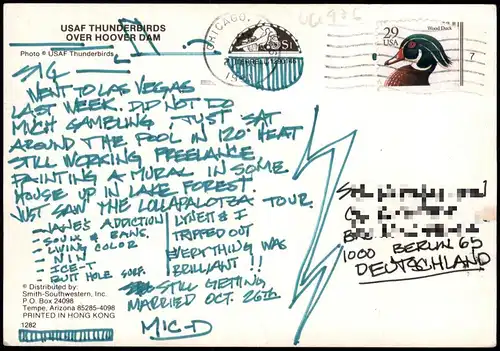 USAF THUNDERBIRDS
OVER HOOVER DAM
Photo © USAF Thunderbirds
SIG —
WENT TO LAS VEGAS
LAST WEEK. DID NOT DO
MUCH GAMBLING, JUST SAT
AROUND THE POOL IN 120° HEAT
STILL WORKING FREELANCE
PAINTING A MURAL IN SOME
HOUSE UP IN LAKE FOREST.
JUST SAW THE LOLLAPALOTZA TOUR.
- JANE'S ADDICTION
- SOUIX & BANS.
- LIVING COLOR
- NIN
- ICE-T
- BUTT HOLE SURF.
LYNETT & I
TRIPPED OUT
EVERYTHING WAS
BRILLIANT!!
STILL GETTING
MARRIED OCT. 26TH
MIC-D
© Distributed by:
Smith-Southwestern, Inc.
P.O. Box 24098
Tempe, Arizona 85285-4098
PRINTED IN HONG KONG
1282
CHICAGO,
29
USA
Wood Duck
7
1000 BERLIN 65
DEUTSCHLAND